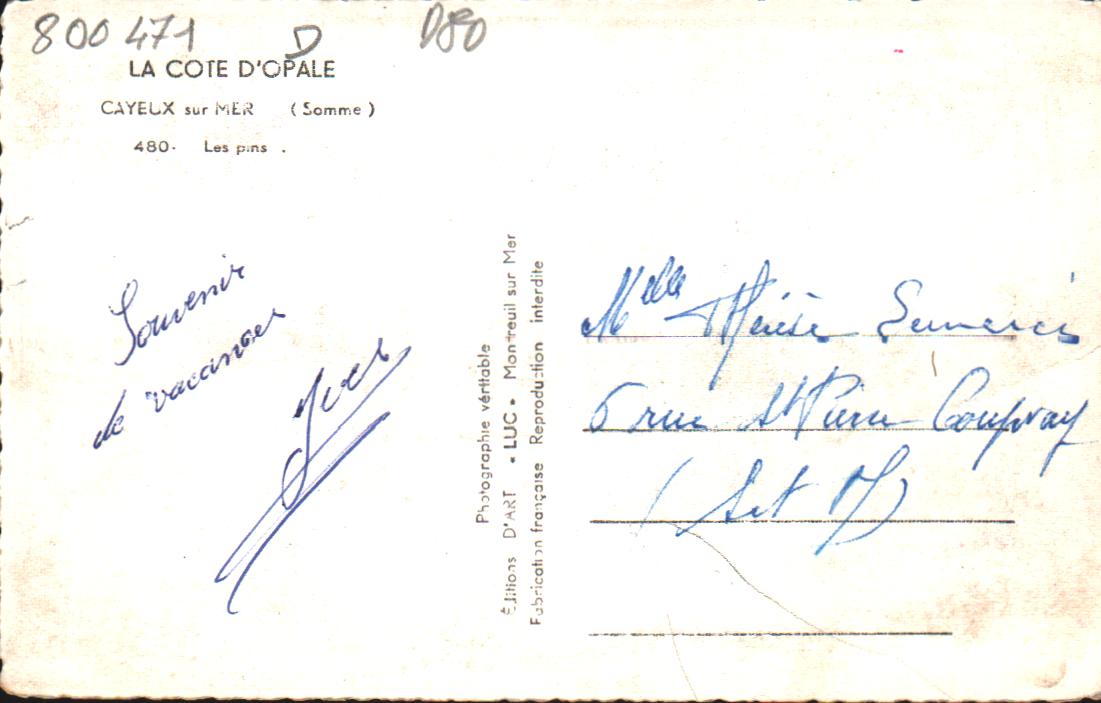 800 471 D D80
LA COTE D'OPALE
CAYEUX sur MER (Somme)
480- Les pins .
Souvenir
de vacances
Yves
Photographie véritable
Éditions D'ART « LUC » Montreuil sur Mer
Fabrication française Reproduction interdite
Melle Thérèse
6 rue St Pierre Coupvray
(Set M)